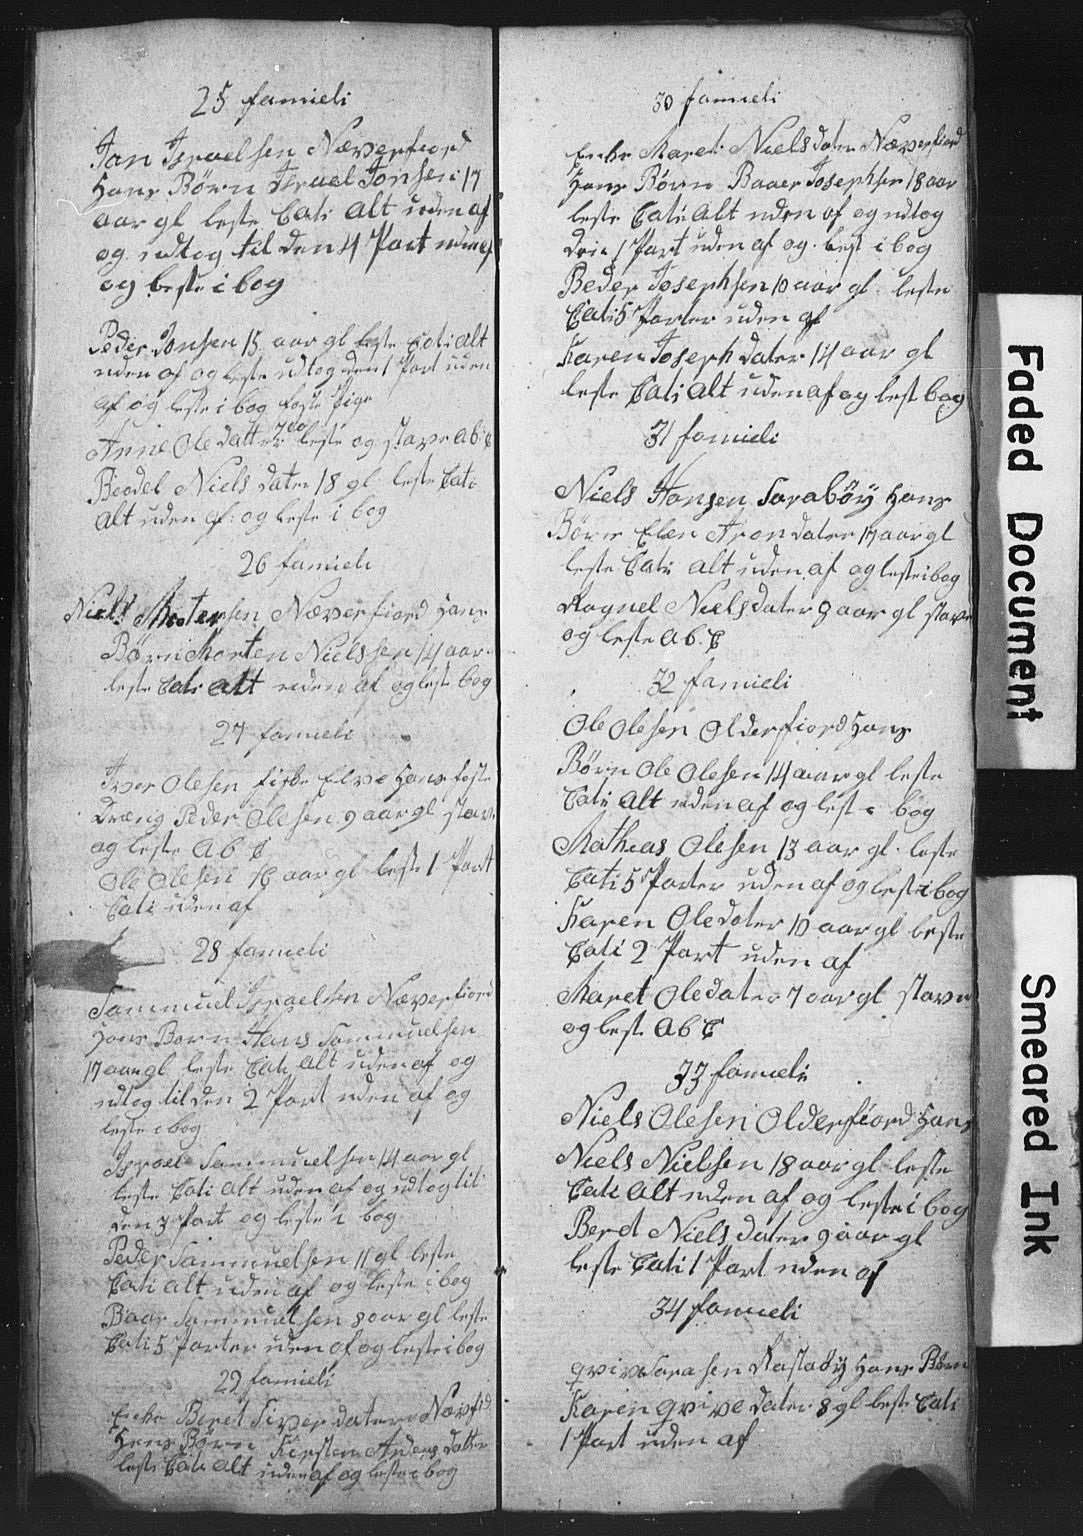 25 famieli
Jan Israelsen Næverfiord
Hans Børn Israel Jonsen 17
aar gl leste Cati alt uden af
og udtog til den 4 Part uden af
og leste i bog
Peder Jonsen 15 aar gl leste Cati alt
uden af og leste udtog den 1 Part uden
af og leste i bog foste Pige
Anne Ole datter leste og stave ab c
Beodel Niels dater 18 gl leste Cati
alt uden af og leste i bog
26 famieli
Niels Mortensen Næverfiord Hans
Børn Morten Nielssen 14 aar
leste Cati alt uden af og leste bog
27 famieli
Iver Olesen fiske Elve Hans foste
Dræng Peder Olesen 9 aar gl stave
og leste ab c
Ole Olesen 16 aar gl leste 1 Part
Cati uden af
28 famieli
Sammuel Israelsen Næverfiord
Hans Børn Hans Sammuelsen
17 aar gl leste Cati alt uden af og
udtog til den 2 Part uden af og
leste i bog
Israel Sammuelsen 14 aar gl
leste Cati alt uden af og udtog til
den 3 Part og leste i bog
Peder Sammuelsen 11 gl leste
Cati alt uden af og leste i bog
Baar Sammuelsen 8 aar gl leste
Cati 5 Parter uden af og leste i bog
29 famieli
Enke Beret Siver dater Næverfd
Hans Børn Kirsten Anders datter
leste Cati alt uden af og leste i bog
30 famieli
Enke Maret Nielsdater Næverfiord
Hans Børn Baaer Josephsen 18 aar
leste Cati alt uden af og udtog
den 1 Part uden af og lest i bog
Beder Josephsen 10 aar gl leste
Cati 5 Parter uden af
Karen Joseph dater 14 aar gl
leste Cati alt uden af og lest bog
31 famieli
Niels Hansen Sarabøy Hans
Børn Elen Arondater 17 aar gl
leste Cati alt uden af og leste i bog
Ragnel Nielsdater 9 aar gl stave
og leste ab c
32 famieli
Ole Olesen Olderfiord Hans
Børn Ole Olesen 14 aar gl leste
Cati alt uden af og lest i bog
Mathias Olesen 13 aar gl leste
Cati 5 Parter uden af og lest i bog
Karen Oledater 10 aar gl leste
Cati 2 Part uden af
Maret Oledater 7 aar gl stave
og lest ab c
33 famieli
Niels Olesen Olderfiord Hans
Niels Nielsen 18 aar gl leste
Cati alt uden af og leste i bog
Beret Niels dater 9 aar gl
leste Cati 1 Part uden af
34 famieli
qvive Sarasen Hans Børn
Karen qvive dater 8 gl leste Cati
1 Part uden af
Faded Document
Smeared Ink